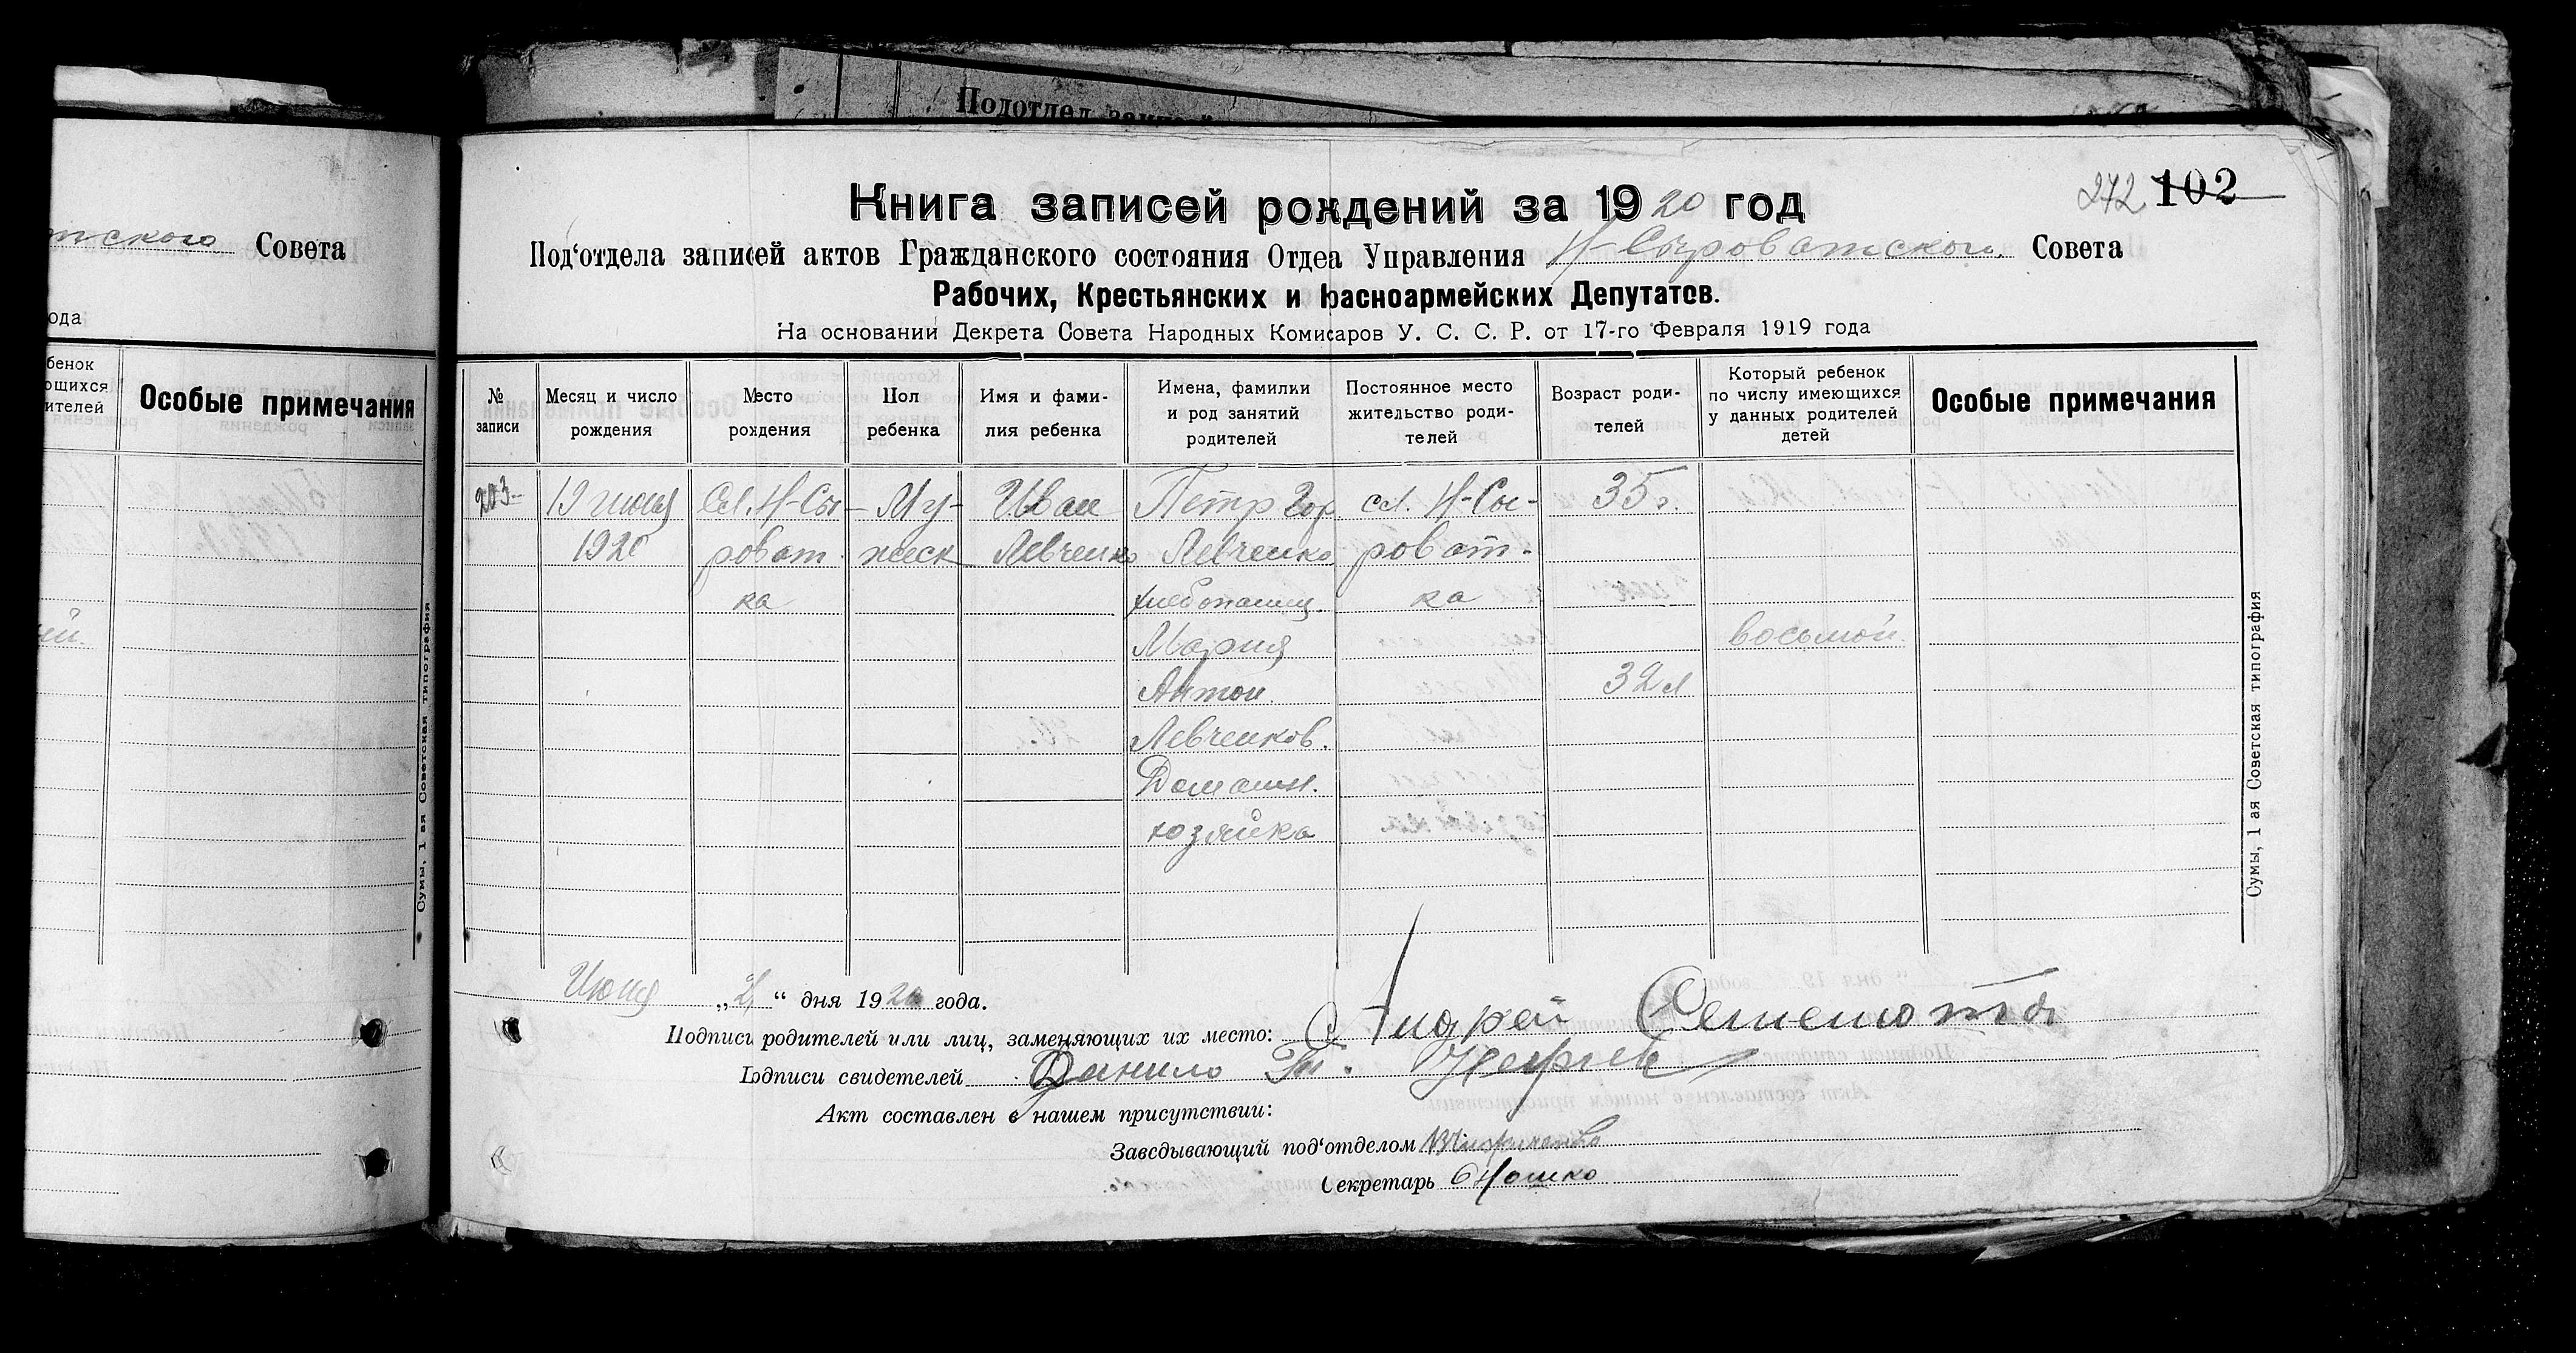 Подотдел
тского Совета
ода
бенок
ющихся
ителей
Особые примечания
ий.
Сумы, 1 ая Советская типография
272 102
Книга записей рождений за 1920 год
Под'отдела записей актов Гражданского состояния Отдеа Управления Н-Сыроватского Совета
Рабочих, Крестьянских и расноармейских Депутатов.
На основании Декрета Совета Народных Комисаров У. С. С. Р. от 17-го Февраля 1919 года
№ записи
Месяц и число рождения
Место рождения
Пол ребенка
Имя и фами-
лия ребенка
Имена, фамилки
и род занятий
родителей
Постоянное место
жительство роди-
телей
Возраст роди-
телей
Который ребенок
по числу имеющихся
у данных родителей
детей
Особые примечания
203 19 июня Сл. Н-Сы- Му- Иван Петр Гор сл. Н-Сы- 35 г.
1920 роват жеск Левченко Левченко роват-
ка хлебопашец. ка
Мария восьмой
Антон. 32 л
Левченков.
Домашн.
хозяйка
Сумы, 1 ая Советская типография
Июня „21“ дня 1920 года.
Подписи родителей или лиц, заменяющих их место: Андрей
Подписи свидетелей Данило
Акт составлен в нашем присутствии:
Заведывающий под'отделом
Секретарь